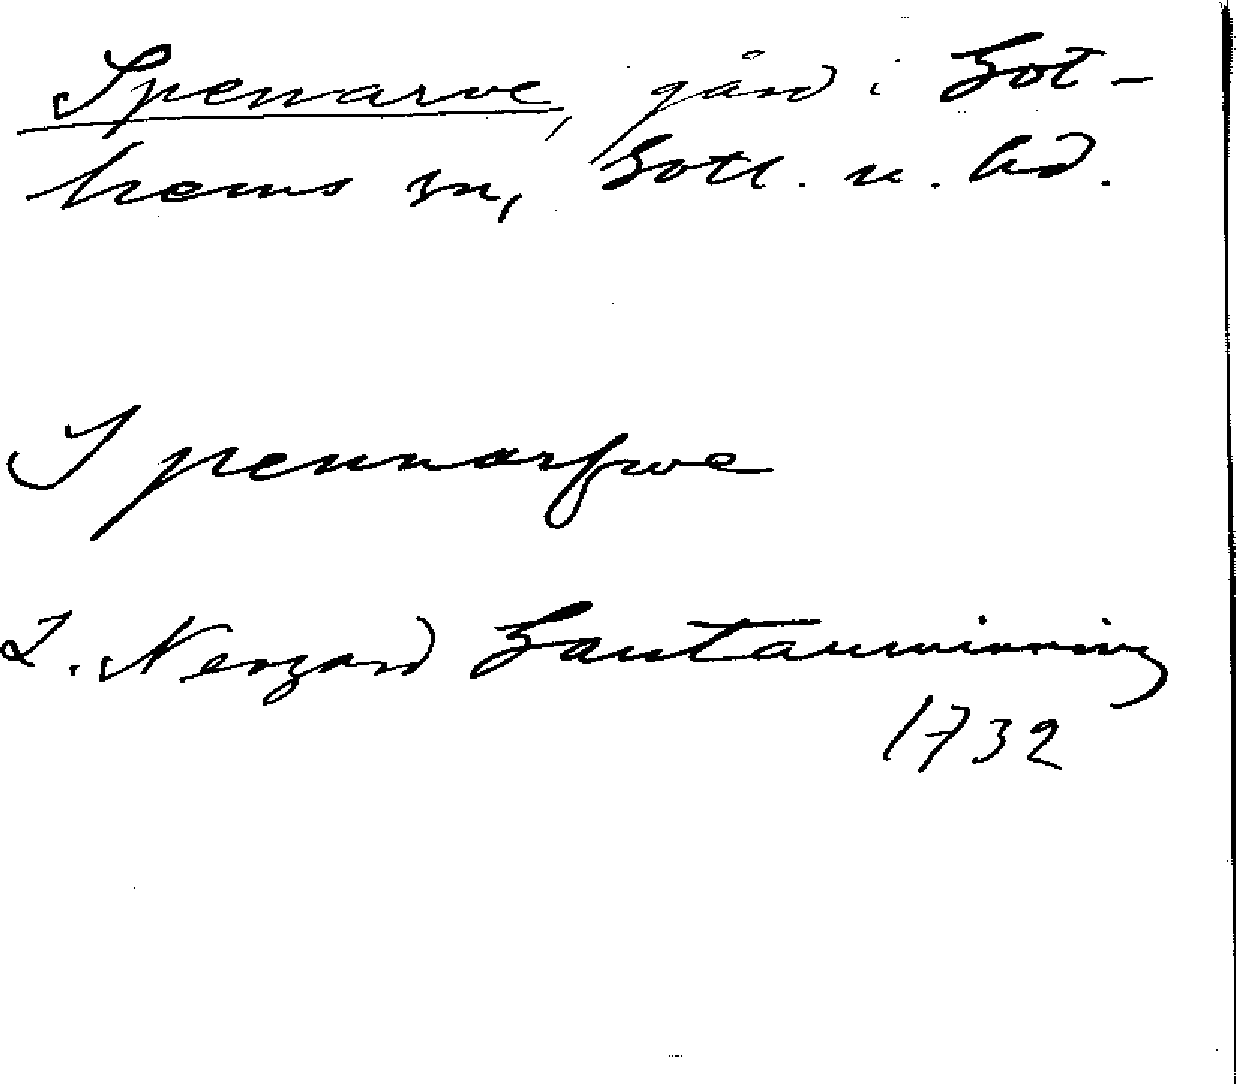 Spenarve, gård i Got-
hems sn, Gotl. n. hd.
Spennarfwe
L. Neogard Gautauminning
1732